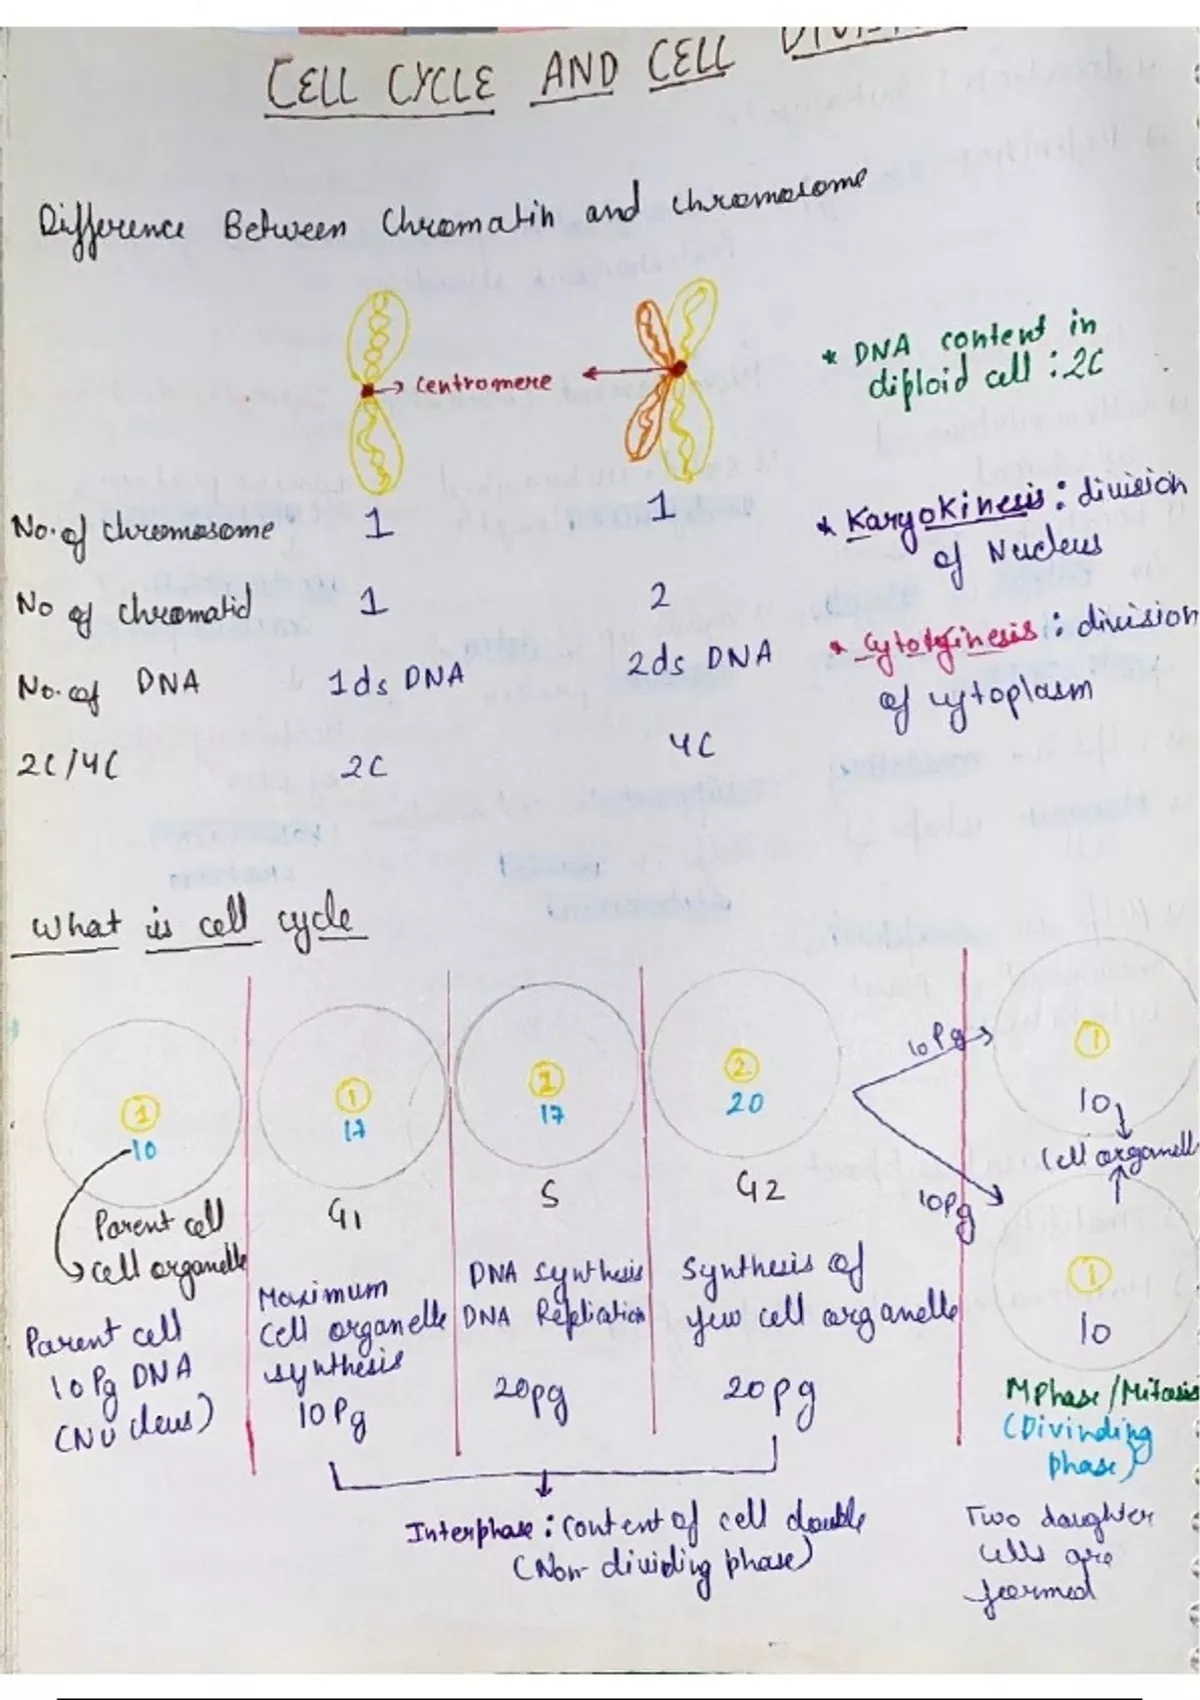 CELL CYCLE AND CELL
Difference Between Chromatin and chromosome
* DNA content in
diploid cell : 2C
centromere
No. of chromosome 1 1
* Karyokinesis : division
of Nucleus
No of chromatid 1 2
* Cytokinesis : division
of cytoplasm
No. of DNA 1ds DNA 2ds DNA
2C/4C 2C 4C
What is cell cycle
1
10
Parent cell
cell organelle
Parent cell
10 Pg DNA
(Nucleus)
1
17
G1
Maximum
Cell organelle
synthesis
10 Pg
17
S
DNA synthesis
DNA Replication
20pg
2
20
G2
Synthesis of
few cell organelle
20pg
10Pg
10Pg
1
10
Cell organell
1
10
M Phase/Mitosis
(Divinding
phase)
Two daughter
cells are
formed
Interphase : Content of cell double
(Non-dividing phase)